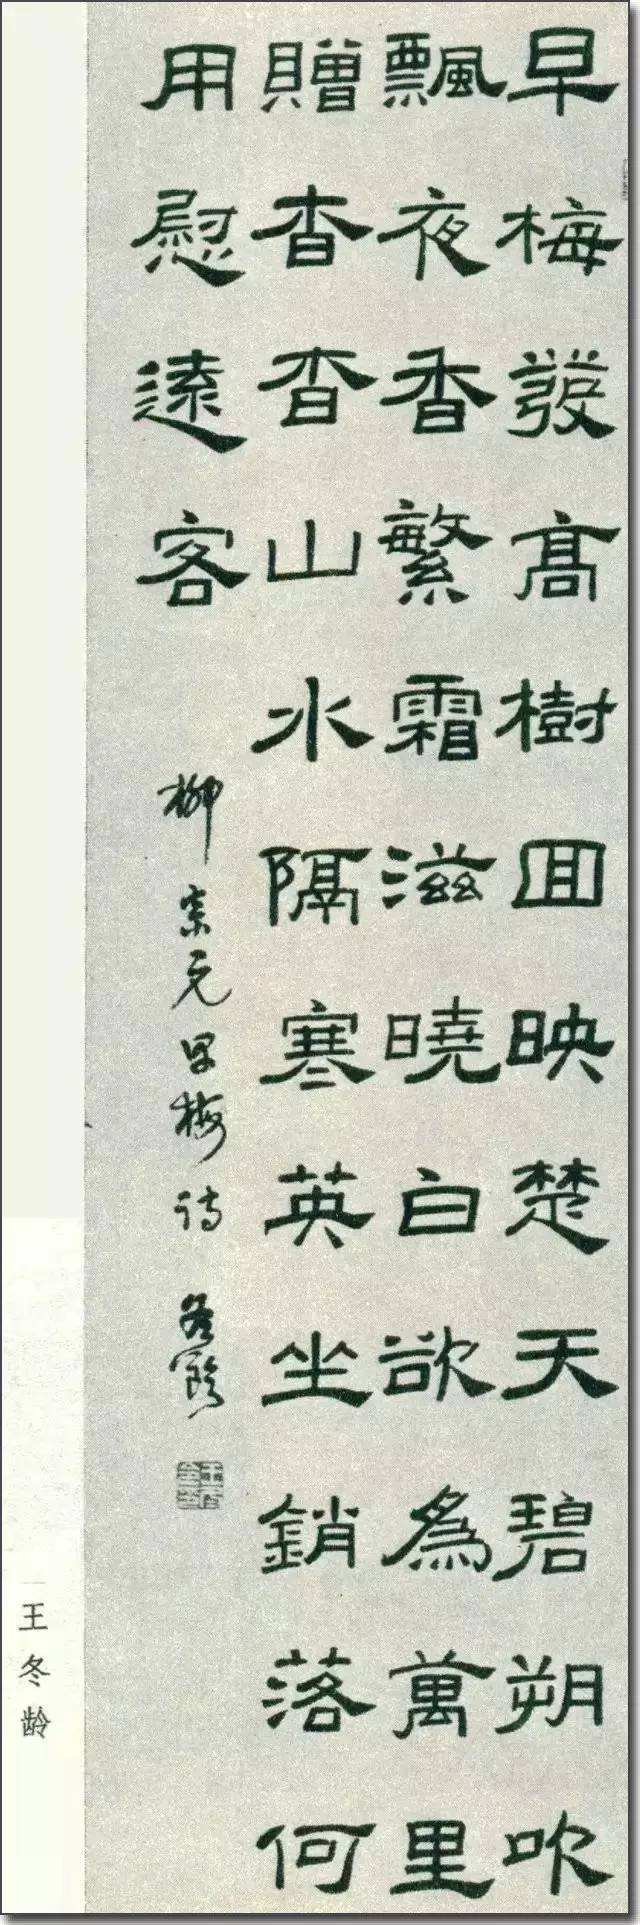 早梅發高樹囬映楚天碧朔吹
飄夜香繁霜滋曉白欲為萬里
贈杳杳山水隔寒英坐銷落何
用慰遠客
柳宗元早梅诗 冬齡
王冬龄